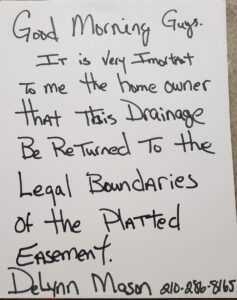 Good Morning Guys.
It is Very Imortnat
To me the home owner
that this Drainage
Be Returned To the
Legal Boundaries
Of the Platted
Easement.
DeLynn Mason 210-286-8165